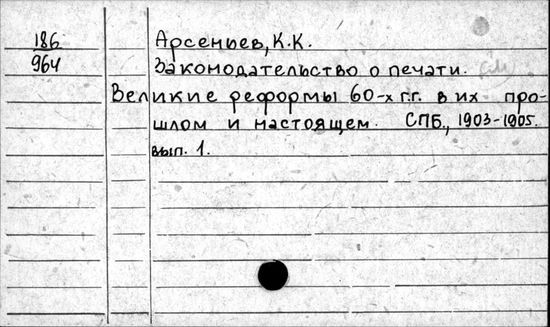 186
964
Арсеньев, К.К.
Законодательство о печати.
Великие реформы 60-х г.г. в их про-
шлом и настоящем. СПБ., 1903-1905.
вып. 1.